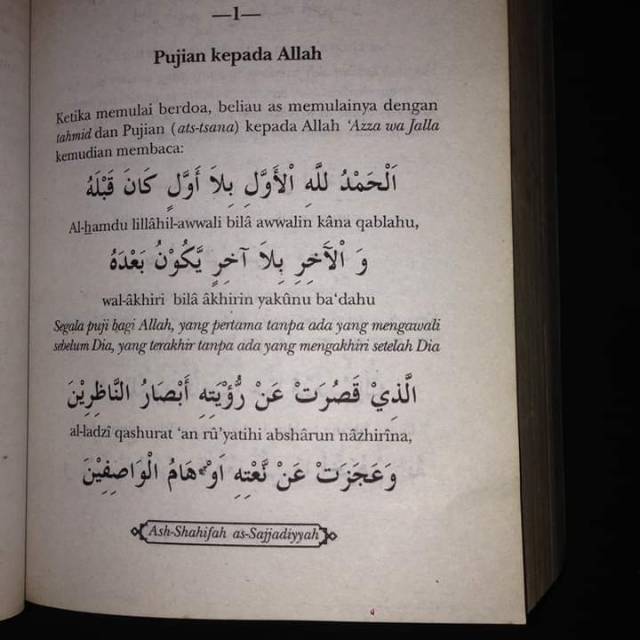 —1—
Pujian kepada Allah
Ketika memulai berdoa, beliau as memulainya dengan
tahmid dan Pujian (ats-tsana) kepada Allah ‘Azza wa Jalla
kemudian membaca:
اَلْحَمْدُ للهِ الْأَوَّلِ بِلاَ أَوَّلٍ كَانَ قَبْلَهُ
Al-hamdu lillâhil-awwali bilâ awwalin kâna qablahu,
وَ الْآخِرِ بِلاَ آخِرٍ يَّكُوْنُ بَعْدَهُ
wal-âkhiri bilâ âkhirin yakûnu ba‘dahu
Segala puji bagi Allah, yang pertama tanpa ada yang mengawali
sebelum Dia, yang terakhir tanpa ada yang mengakhiri setelah Dia
الَّذِيْ قَصُرَتْ عَنْ رُّؤْيَتِهِ أَبْصَارُ النَّاظِرِيْنَ
al-ladzî qashurat ‘an rû’yatihi abshârun nâzhirîna,
وَعَجَزَتْ عَنْ نَّعْتِهِ اَوْهَامُ الْوَاصِفِيْنَ
Ash-Shahifah as-Sajjadiyyah